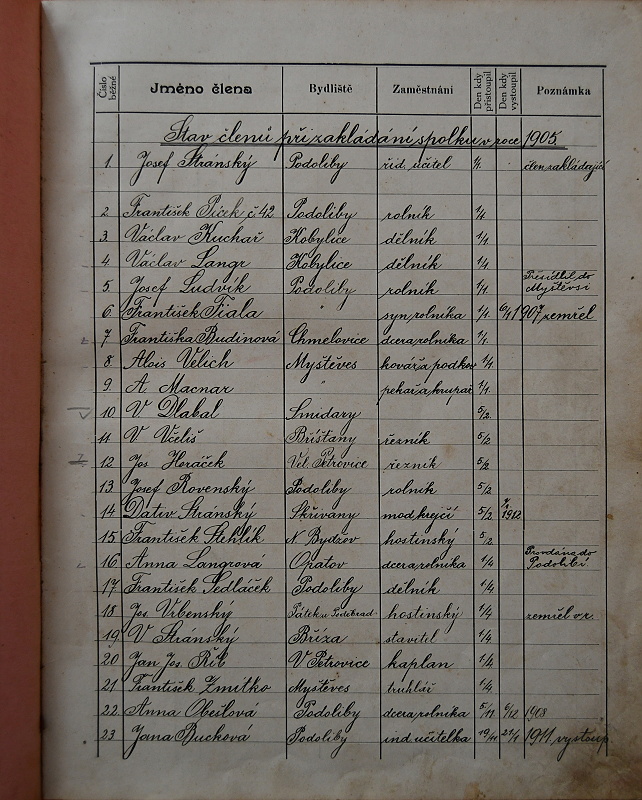 Číslo běžné Jméno člena Bydliště Zaměstnání Den kdy přistoupil Den kdy vystoupil Poznámka
Stav členů při zakládání spolku v roce 1905.
1 Josef Stránský Podoliby říd. učitel 1/4. člen zakládající
2 František Píček č. 42 Podoliby rolník 1/4
3. Václav Kuchař Kobylice dělník 1/4
4 Václav Langr Kobylice dělník 1/4
Přesídlil do
5 Josef Ludvík Podoliby rolník 1/4 Myštěvsi
6 František Fiala " syn rolníka 1/4 6/4 1907 zemřel
7 Františka Budinová Chmelovice dcera rolníka 1/4
8 Alois Velich Myštěves kovář a podkov 1/4
9 A. Macnar " pekař a krupař 1/4
10 V Dlabal Smidary 5/2
11 V. Včeliš Bříšťany řezník 5/2
12 Jos Horáček Vel. Petrovice řezník 5/2
13. Josef Rovenský Podoliby rolník 5/2
14 Stránský Skřivany mod. krejčí 5/2 1912
15 František Stehlík N Bydžov hostinský 5/2
Provdána do
16 Anna Langrová Opatov dcera rolníka 1/4 Podolibí
17 František Sedláček Podoliby dělník 1/4
18 Jos. Vrbenský Pátek u Poděbrad hostinský 1/4 zemřel v r.
19 V Stránský Bříza stavitel 1/4
20 Jan Jos. V Petrovice kaplan 1/4
21 František Zmitko Myštěves truhlář 1/4
22 Anna Podoliby dcera rolníka 5/11 6/12 1908
23 Jana Bucková Podoliby ind. učitelka 19/11 21/1 1911 vystoup.